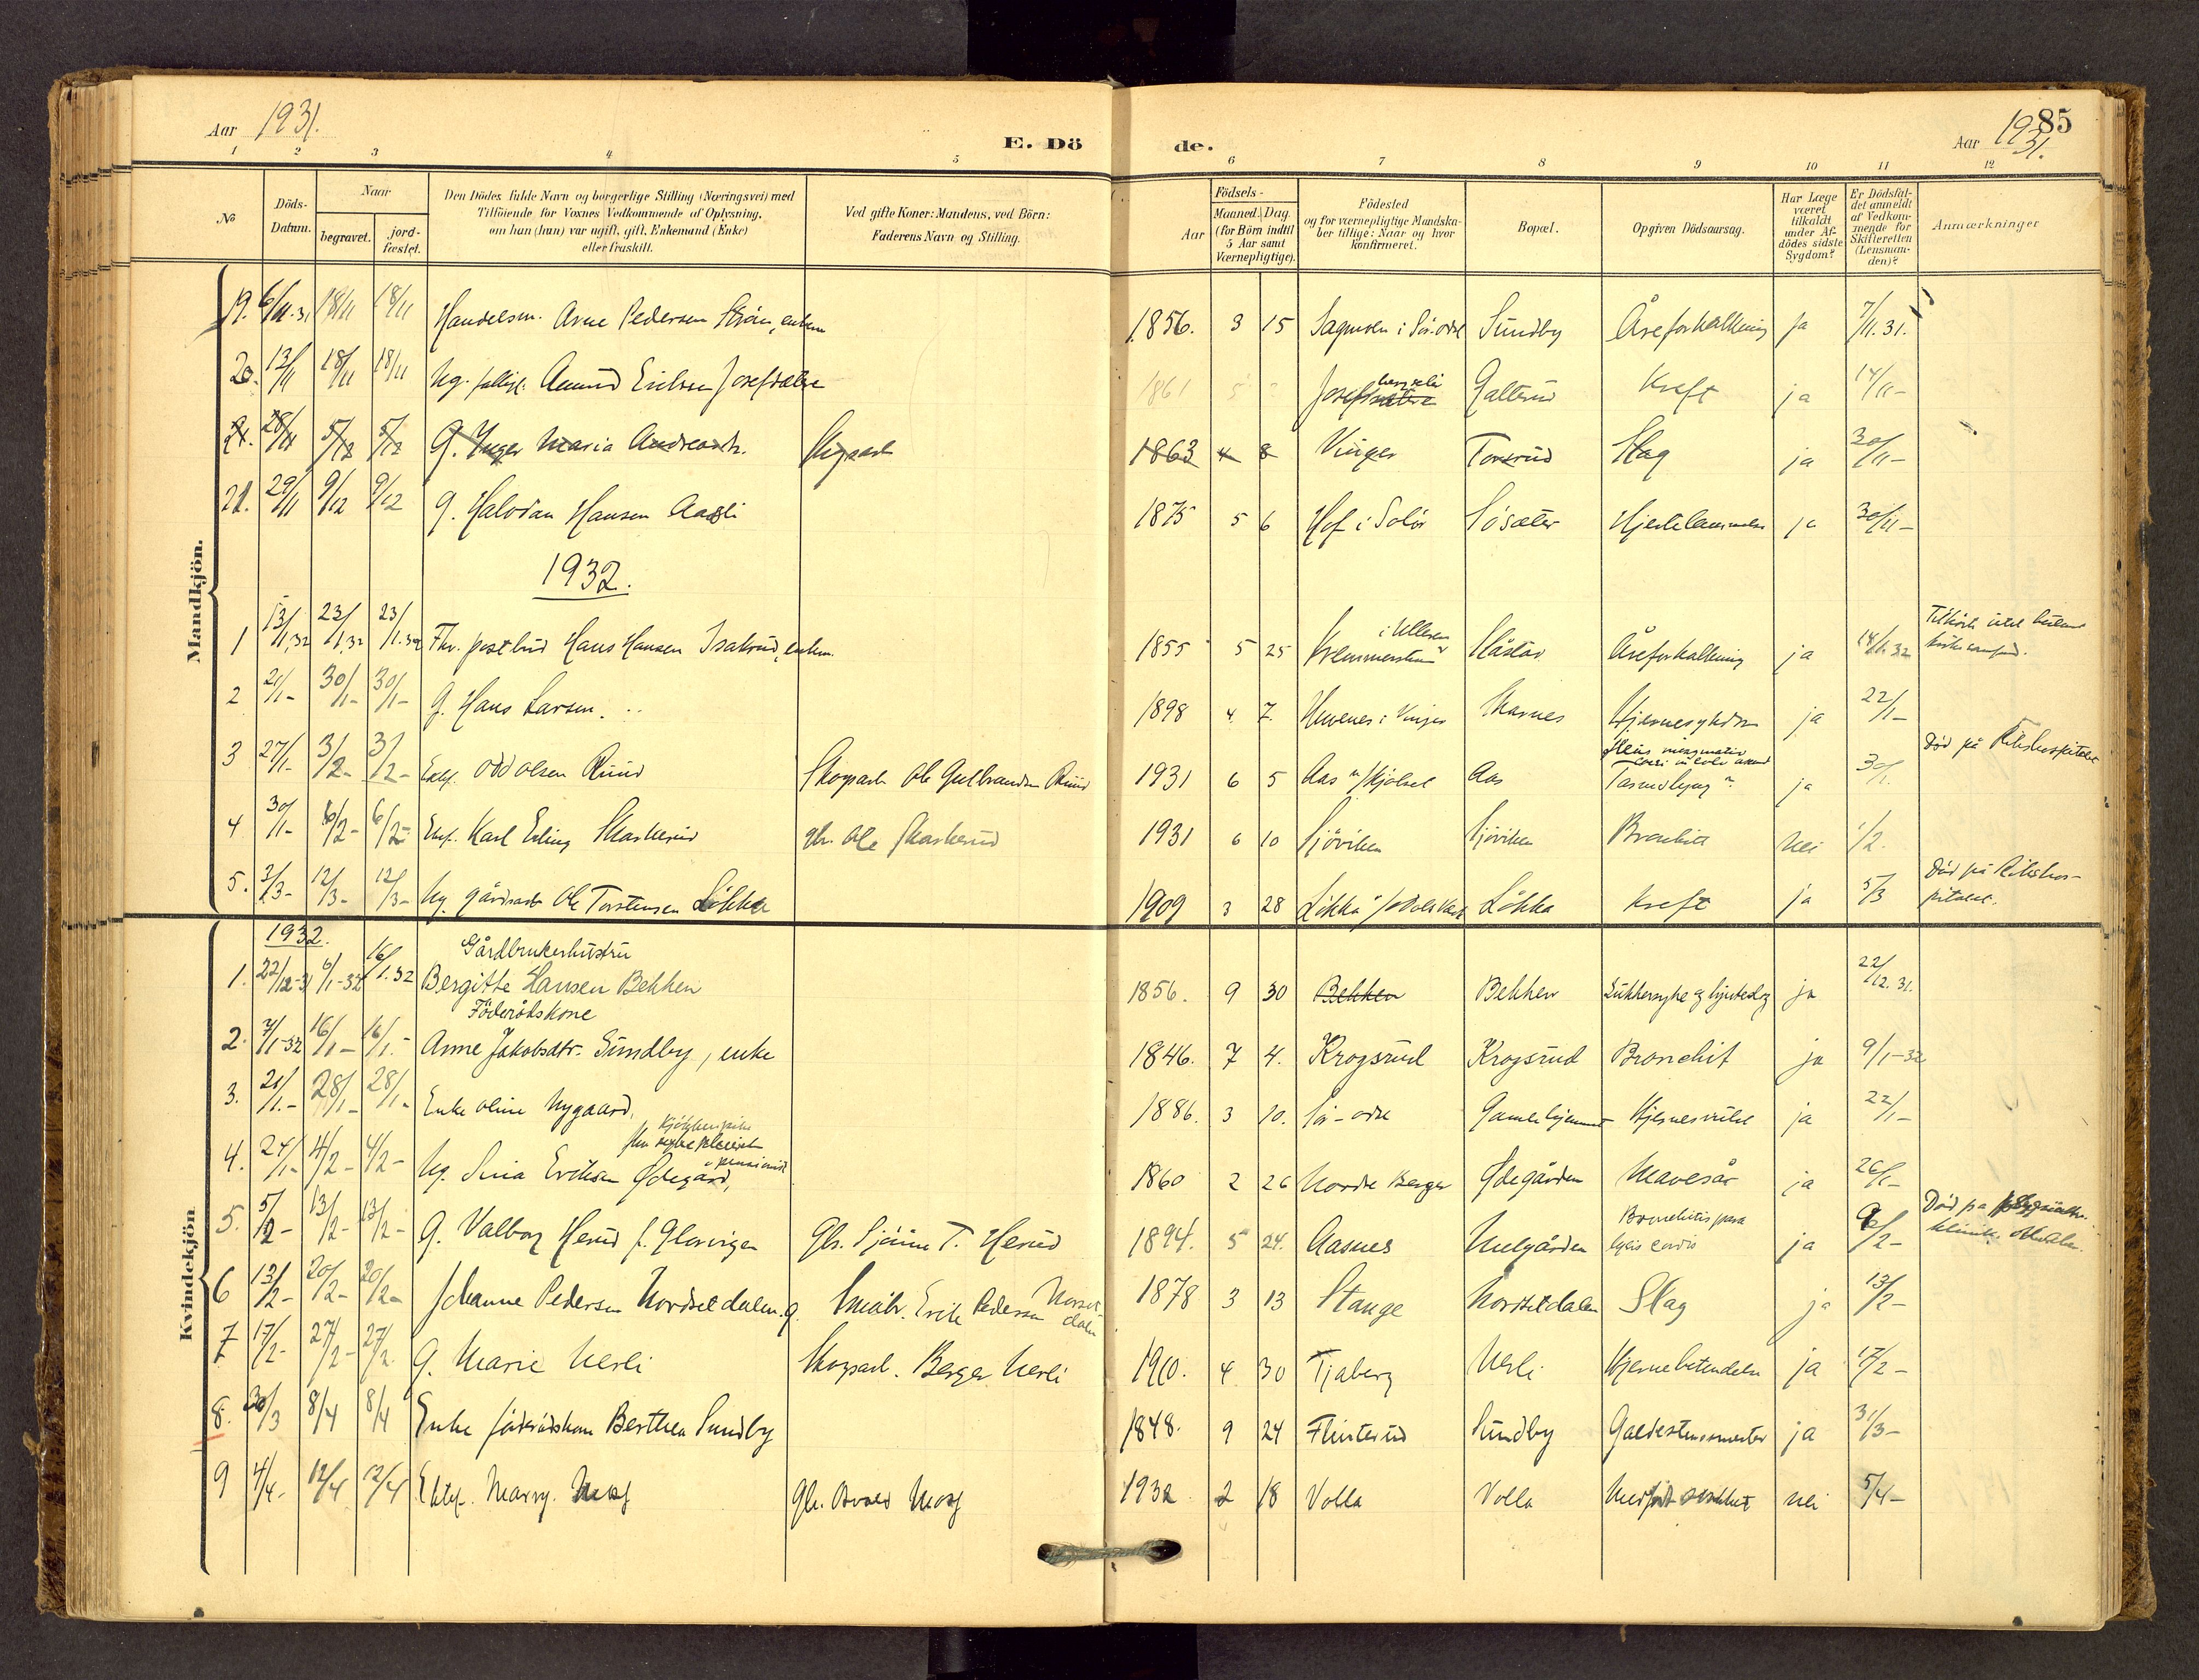 Aar 1931.
E. Dö
de.
85
Aar 1931.
1 2 3 4 5 6 7 8 9 10 11 12
No
Döds-
Datum.
Naar
begravet.
jord-
fæstet.
Den Dödes fulde Navn og borgerlige Stilling (Næringsvei) med
Tilföiende for Voxnes Vedkommende af Oplysning,
om han (hun) var ugift, gift, Enkemand (Enke)
eller fraskilt.
Ved gifte Koner: Mandens, ved Börn:
Faderens Navn og Stilling.
Aar
Födsels-
Maaned. Dag.
(for Börn indtil
5 Aar samt
Værnepligtige).
Födested
og for værnepligtige Mandska-
ber tillige: Naar og hvor
konfirmeret.
Bopæl.
Opgiven Dödsaarsag.
Har Læge
været
tilkaldt
under Af-
dödes sidste
Sygdom?
Er Dödsfal-
det anmeldt
af Vedkom-
mende for
Skifteretten
(Lensman-
den)?
Anmærkninger
Mandkjön.
19. 6/11.31 18/11 18/11 Handelsm. Arne Pedersen enkem 1856. 3 15 Sagmoen i Sör-odal Sundby Åreforkalkning ja 7/11.31.
20. 13/11 18/11 18/11 Ug. Amund Eriksen Josefsæter 1861 5 Josefs Galterud Kreft ja 14/11-
21. 28/11 5/12 5/12 G. Inger Maria Andreasdtr. Skogsarb 1863 4 8 Vinger Torsrud Slag ja 30/11-
21. 29/11 9/12 9/12 G. Halvdan Hansen Aasli 1875 5 6 Hof i Solör Sösæter Hjertelammelse ja 30/11-
1932.
1 13/1.32 23/1.32 23/1.32 Fhv. postbud Hans Hansen Isakrud, enkem. 1855 5 25 i Ullern Slåstad Åreforkalkning ja 14/1.32
2 21/1- 30/1- 30/1- G. Hans Larsen. 1898 4 7. i Vinger Skarnes Hjernesykdom ja 22/1-
3 27/1- 3/2- 3/2- Odd Olsen Ruud Skogsarb Ole Gulbrandsen Ruud 1931 6 5 Aas Aas ja 30/1. Död på Rikshospitalet
4 30/1- 6/2- 6/2- Karl Erling Skarkerud gbr. Ole Skarkerud 1931 6 10 Sjöviken Sjöviken Bronkitt nei 1/2.
5. 3/3- 12/3- 12/3- Ug. gårdsarb Ole Torstensen Lökka 1909 3 28 Lökka Lökka Kreft ja 5/3 Död på Rikshos-
pitalet.
Kvindekjön
1932.
Gårdbrukerhustru
1. 22/12-31 6/1-32 16/1.32 Bergitte Hansen Bekken 1856. 9 30 Bekken Bekken Sukkersyke og ja 22/12.31.
Föderådskone
2. 7/1-32 16/1- 16/1.- Anne Jakobsdtr. Sundby, enke 1846. 7 4. Krogsrud Krogsrud Bronchit ja 9/1-32
3. 21/1.- 28/1- 28/1- Enke Oline Nygaard, 1886. 3 10. Sör-odal Gamlehjemmet ja 22/1-
4. 24/1- 4/2- 4/2- Ug. Eriksen Ødegård, 1860 2 26 Nordre Berger Ødegården Mavesår ja 26/1-
5. 5/2- 13/2- 13/2- G. Valborg Herud f. Glorvigen Gbr. T. Herud 1894. 5 24. Aasnes Bronchitis para
lysis cordis ja 9/2- Död på
6 13/2- 20/2- 20/2- Johanne Pedersen Nordsetdalen. g. Småbr. Erik Pedersen Nordset
dalen 1878 3 13 Stange Nordsetdalen Slag ja 13/2-
7 17/2- 27/2- 27/2. G. Marie Nerli Skogsarb. Berger Nerli 1910. 4 30 Tjaberg Nerli Hjernebetendelse ja 17/2-
8. 30/3 8/4 8/4 Enke föderådskone Berthea Sundby 1848. 9 24 Flinterud Sundby Galdestenssmerter ja 31/3-
9 4/4- 12/4 12/4 Marry Gbr. 1932 2 18 Volla Volla Medfödt svakhet nei 5/4-